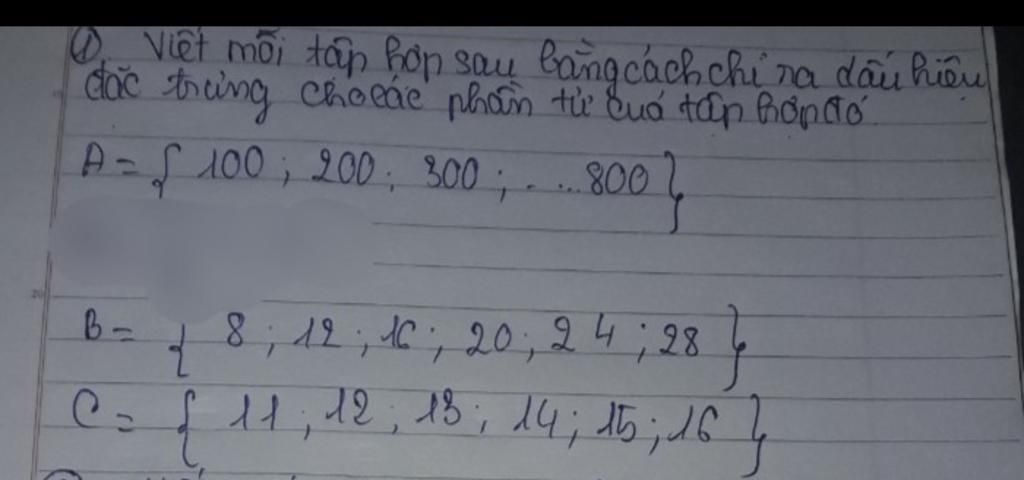 ① Viết mỗi tập hợp sau bằng cách chỉ ra dấu hiệu
đặc trưng cho các phần tử của tập hợp đó
A = { 100 ; 200 ; 300 ; ....800 }
B = { 8 ; 12 ; 16 ; 20 ; 24 ; 28 }
C = { 11 ; 12 ; 13 ; 14 ; 15 ; 16 }